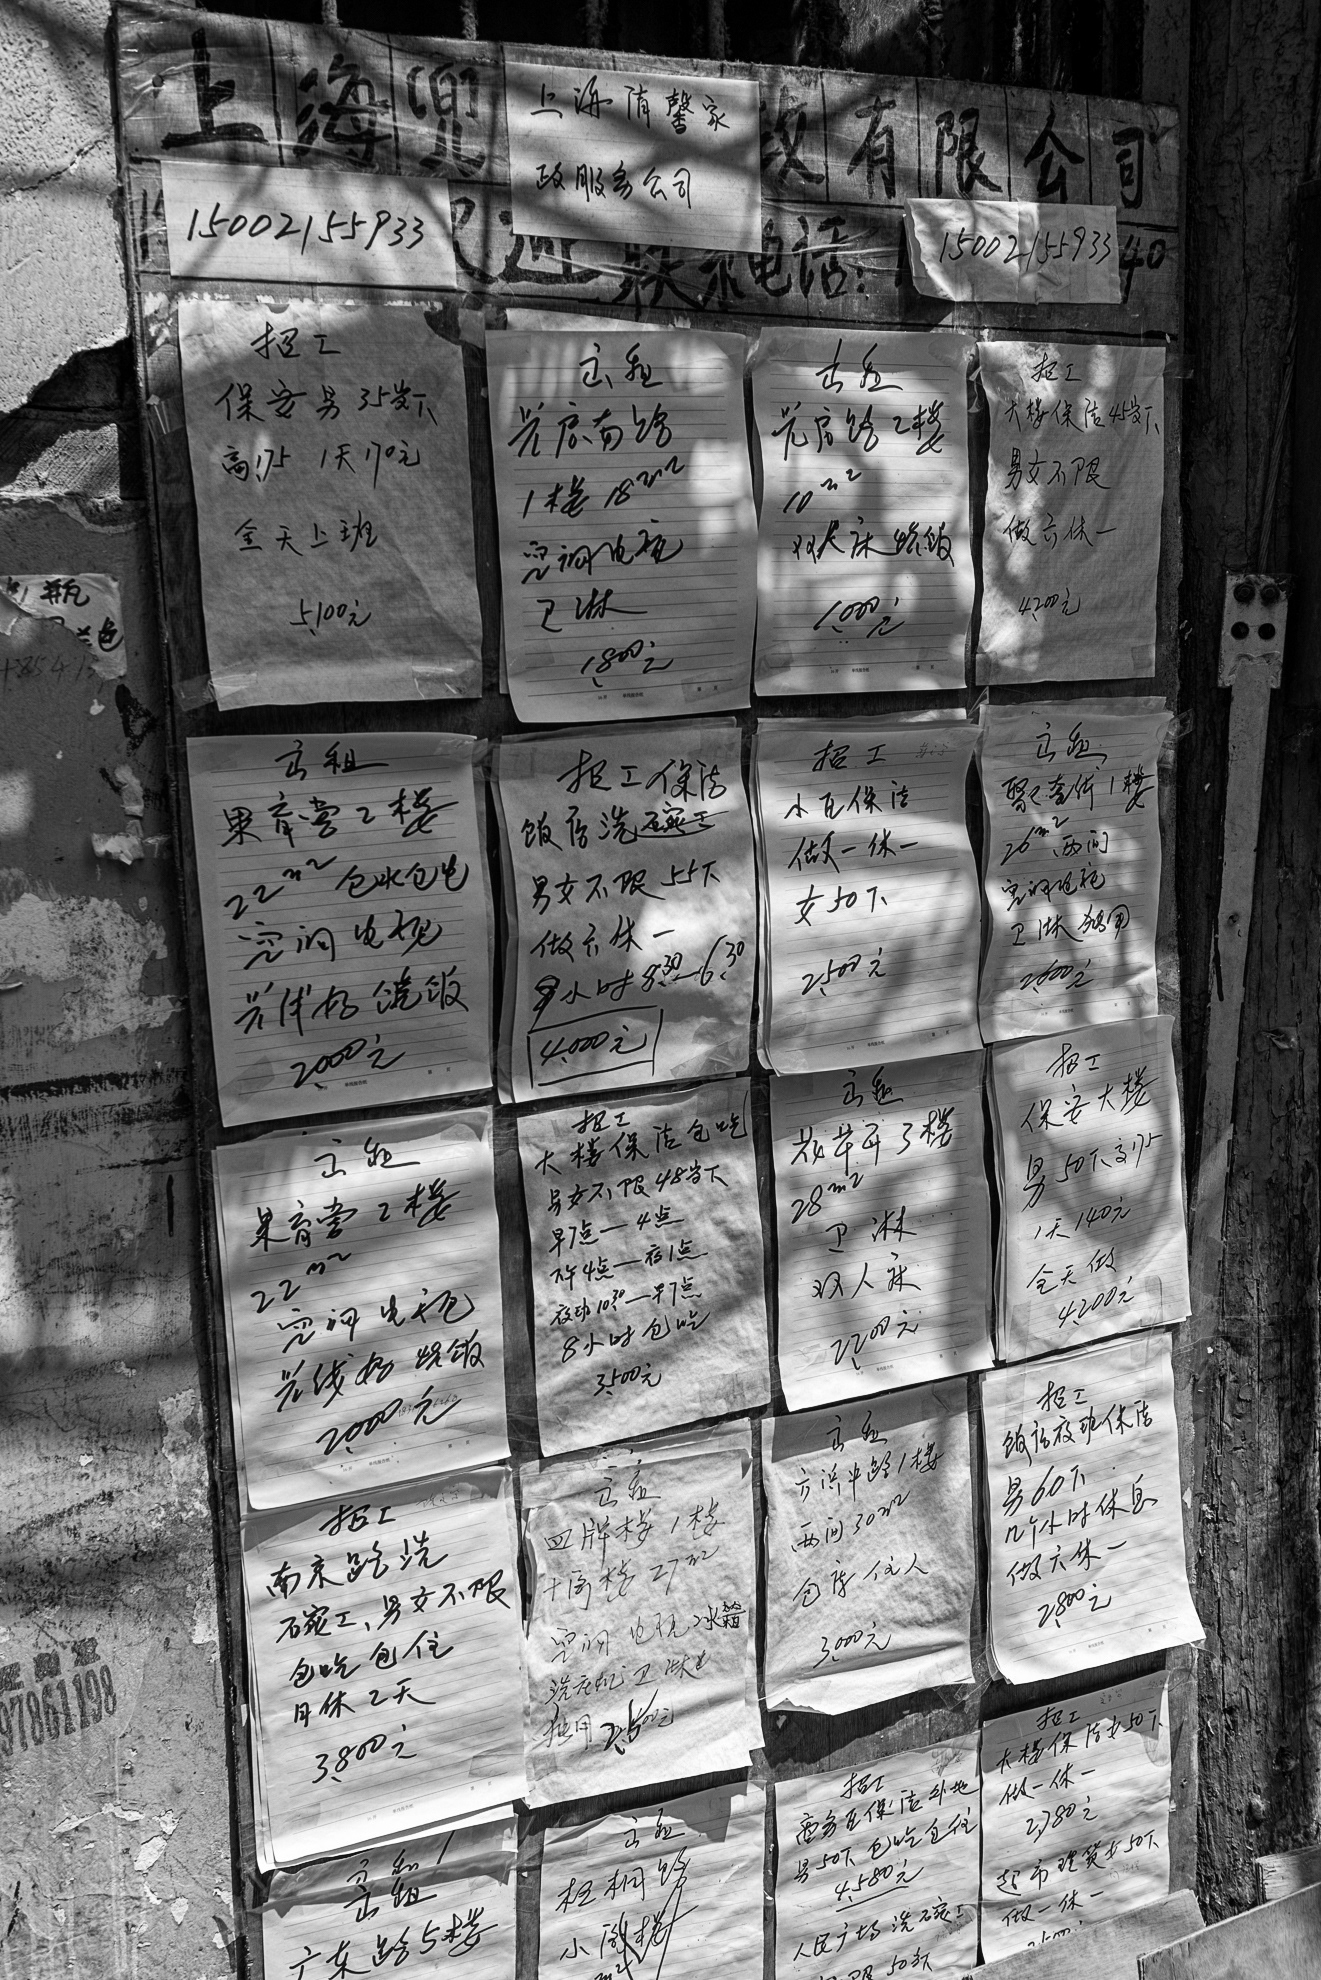 上海
有限公司
上海隋馨家
政服务公司
15002155933
15002155933
联系电话:
40
招工
保安男35岁下
高1.75 1天170元
全天上班
5,100元
出租
1楼18m²
空调电视
卫淋
1,800元
出租
2楼
10m²
双人床烧饭
1,000元
招工
大楼保洁45岁下
男女不限
做六休一
4,200元
出租
果育堂2楼
22m²包水包电
空调电视
光线好烧饭
2,000元
招工保洁
饭店洗碗工
男女不限55下
做六休一
9小时8:30—6:30
4,000元
招工
小区保洁
做一休一
女50下
2,500元
出租
1楼
26m²两间
空调电视
卫淋独用
2,600元
出租
果育堂2楼
22m²
空调电视
光线好烧饭
2,000元
招工
大楼保洁包吃
男女不限48岁下
早7点—4点
下午4点—夜1点
夜班10:30—早7点
8小时包吃
3,500元
出租
花草弄3楼
28m²
卫淋
双人床
2,200元
招工
保安大楼
男50下高1.75
1天140元
全天做
4,200元
招工
南京路洗
碗工,男女不限
包吃包住
月休2天
3,800元
出租
四牌楼1楼
27m²
空调电视冰箱
洗衣机卫淋
独用2,500元
出租
方浜中路1楼
两间30m²
住人
3,000元
招工
饭店夜班保洁
男60下
几个小时休息
做六休一
2,800元
出租
广东路5楼
出租
梧桐路
小阁楼
招工
商务区保洁外地
男50下包吃包住
4,580元
人民广场洗碗工
招工
大楼保洁女50下
做一休一
2,780元
超市理货女50下
做一休一
97861198